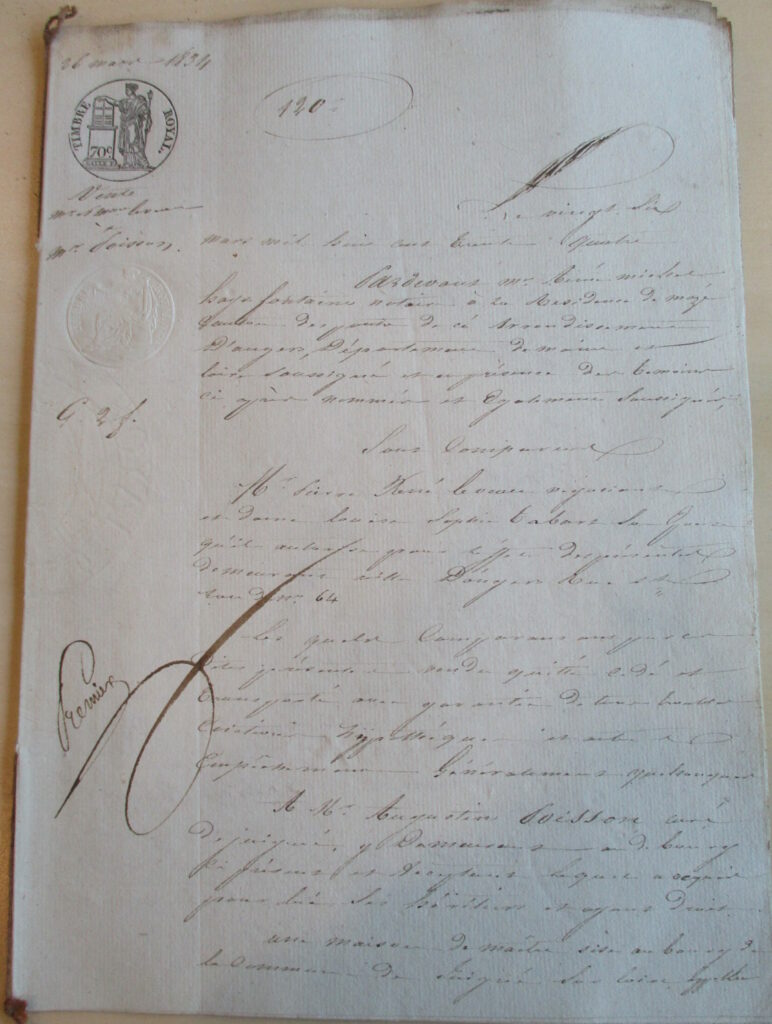 26 mars 1834
TIMBRE ROYAL.
70c
120e
Vente
Mr et Mme
à
Mr Soisson
Le vingt Six
mars mil huit cent trente quatre
Pardevant Mr René michel
fontaine notaire à la Residence de mazé
Canton des ponts de cé Arrondissement
D'angers, Département de maine et
loire soussigné et en présence des temoins
ci après nommés et Egalement soussignés,
G 2 f.
Sont Comparus
Mr Pierre René négociant
et dame louise Sophie tabart Son Epouse
qu'il autorise pour l'effet des présentes
demeurant ville D'angers Rue St
no. 64
Les quels Comparans ont par ces
dites présentes vendu quitté cédé et
transporté avec garantie de tous troubles
Evictions hypothèques et autres
Empêchemens Généralement quelconques
Premier
A Mr. Augustin Soisson curé
de juigné, y Demeurant au dit bourg
ci présent et acceptant lequel acquiert
pour lui Ses héritiers et ayans droit
une maison de maître sise au bourg de
la Commune de Juigné Sur loire, appellée